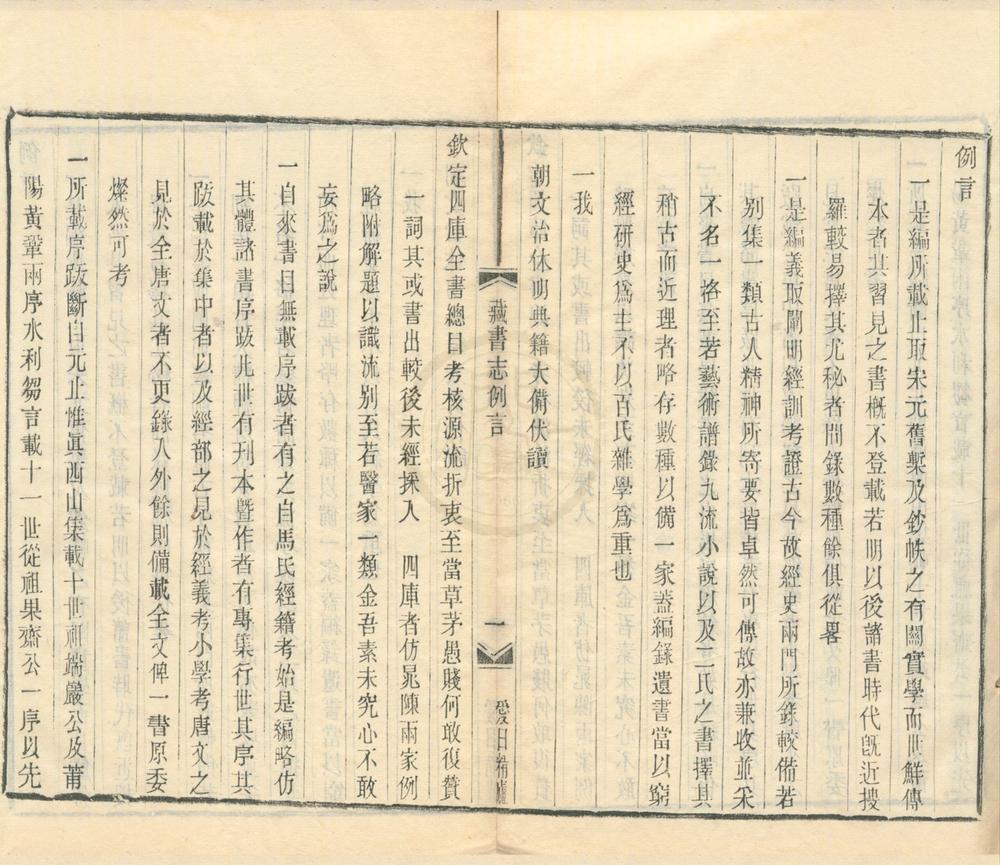 例言
一是編所載止取宋元舊槧及鈔帙之有關實學而世鮮傳
本者其習見之書概不登載若明以後諸書時代旣近搜
羅較易擇其尤秘者間錄數種餘俱從畧
一是編義取闡明經訓考證古今故經史兩門所錄較備若
别集一類古人精神所寄要皆卓然可傳故亦兼收並采
不名一洛至若藝術譜錄九流小說以及二氏之書擇其
稍古而近理者略存數種以備一家葢編錄遺書當以窮
經研史爲主不以百氏雜學爲重也
一我
朝文治休明典籍大備伏讀
藏書志例言
一
愛日精廬
欽定四庫全書總目考核源流折衷至當草茅愚賤何敢復贊
一詞其或書出較後未經採入 四庫者仿晁陳兩家例
略附解題以識流别至若醫家一類金吾素未究心不敢
妄爲之說
一自來書目無載序跋者有之自馬氏經籍考始是編略仿
其體諸書序跋凡世有刊本曁作者有專集行世其序其
跋載於集中者以及經部之見於經義考小學考唐文之
見於全唐文者不更錄入外餘則備載全文俾一書原委
燦然可考
一所載序跋斷自元止惟眞西山集載十世祖端巖公及莆
陽黃鞏兩序水利芻言載十一世從祖果齋公一序以先